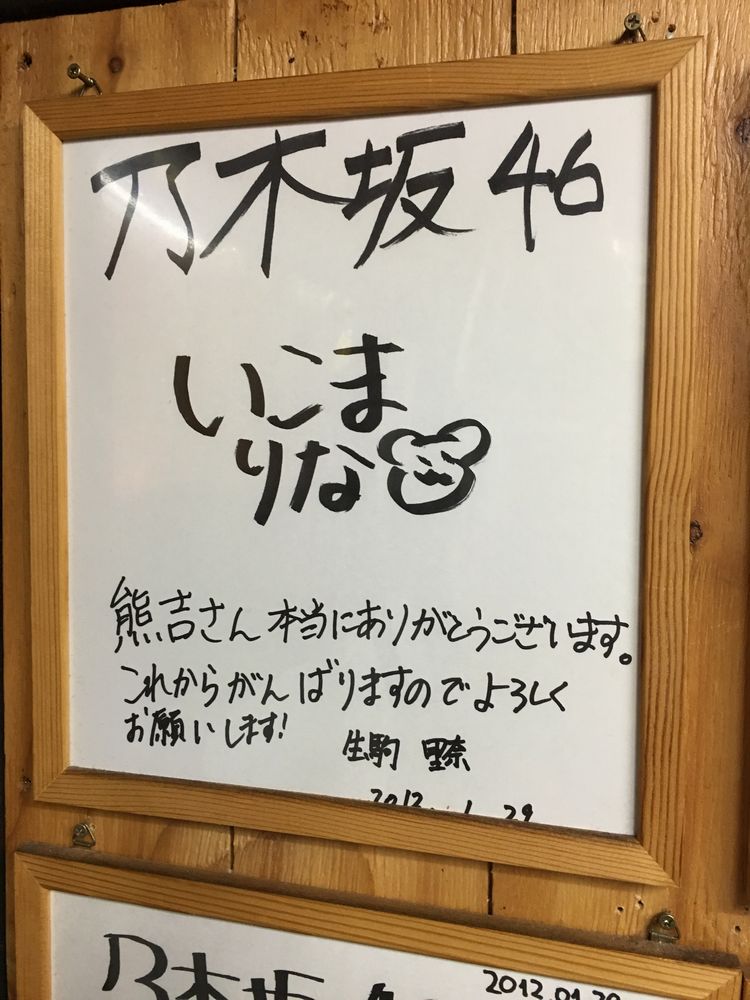 乃木坂46
いこま
りな
熊吉さん 本当にありがとうございます。
これからがんばりますのでよろしく
お願いします!
生駒 里奈
2012. 1. 29
乃木坂4
2012.01.29